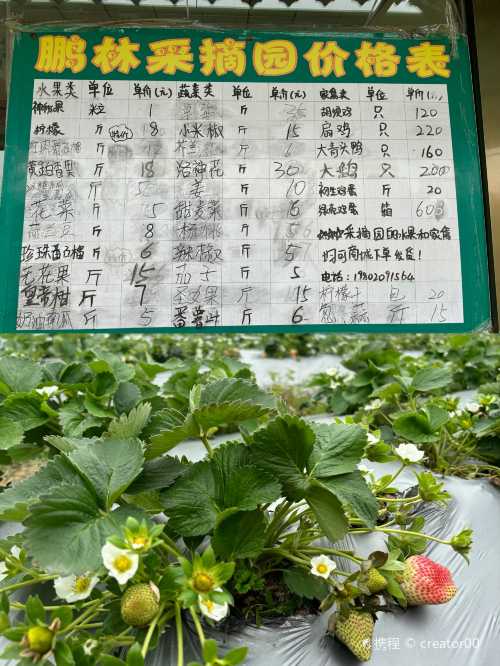 鹏林采摘园价格表
水果类 单位 单价(元) 蔬菜类 单位 单价(元) 家禽类 单位 单价(元)
神秘果 粒 1 斤 35 胡须鸡 只 120
柠檬 斤 8 小米椒 斤 15 扁鸡 只 220
斤 斤 6 大青头鸭 只 160
黄金百香果 斤 18 洛神花 斤 30 大鹅 只 200
斤 5 姜 斤 10 初生鸡蛋 斤 20
花菜 斤 5 甜麦菜 斤 6 绿壳鸡蛋 箱 60
荷兰豆 斤 8 秋葵 斤 5 采摘园的水果和家禽
珍珠番石榴 斤 6 辣椒 斤 5 均可商枇下单发货!
无花果 斤 15 茄子 斤 5 电话:
皇帝柑 斤 7 斤 15 柠檬干 包 20
奶油南瓜 斤 5 番薯叶 斤 6 葱、蒜 斤 15
携程 © creator00